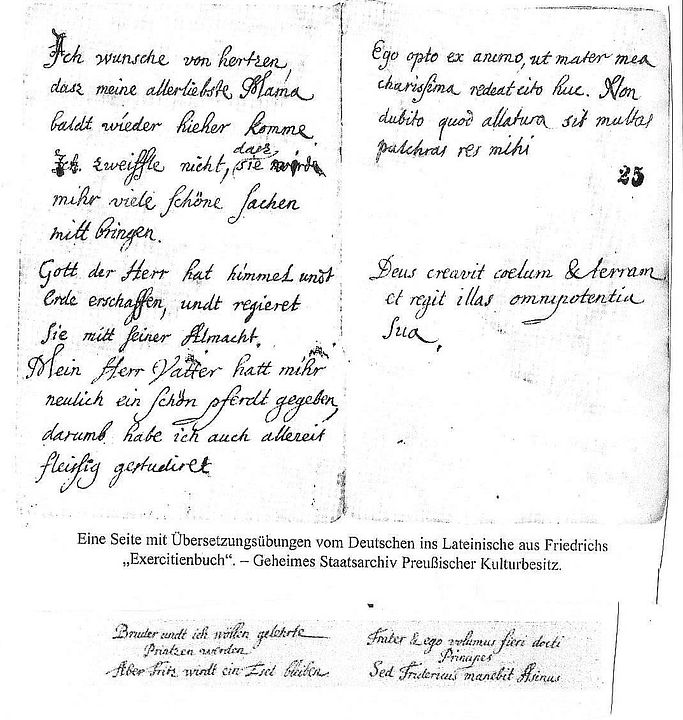 Ich wunsche von hertzen,
dasz meine allerliebste Mama
baldt wieder hieher komme
Ich zweiffle nicht, dasz sie
mihr viele schöne sachen
mitt bringen.
Gott der Herr hat himmel undt
Erde erschaffen, undt regieret
Sie mitt seiner Almacht.
Mein Herr Vatter hatt mihr
neulich ein schön pferdt gegeben,
darumb habe ich auch allezeit
fleissig gestudiret
Ego opto ex animo, ut mater mea
charissima redeat cito huc. Non
dubito quod allatura sit multas
pulchras res mihi
25
Deus creavit coelum & terram
et regit illas omnipotentia
Sua.
Eine Seite mit Übersetzungsübungen vom Deutschen ins Lateinische aus Friedrichs
„Exercitienbuch“. – Geheimes Staatsarchiv Preußischer Kulturbesitz.
Bruder undt ich wollen gelehrte
Printzen werden
Aber Fritz wirdt ein Esel bleiben
Frater & ego volumus fieri docti
Principes
Sed Fridericus manebit Asinus